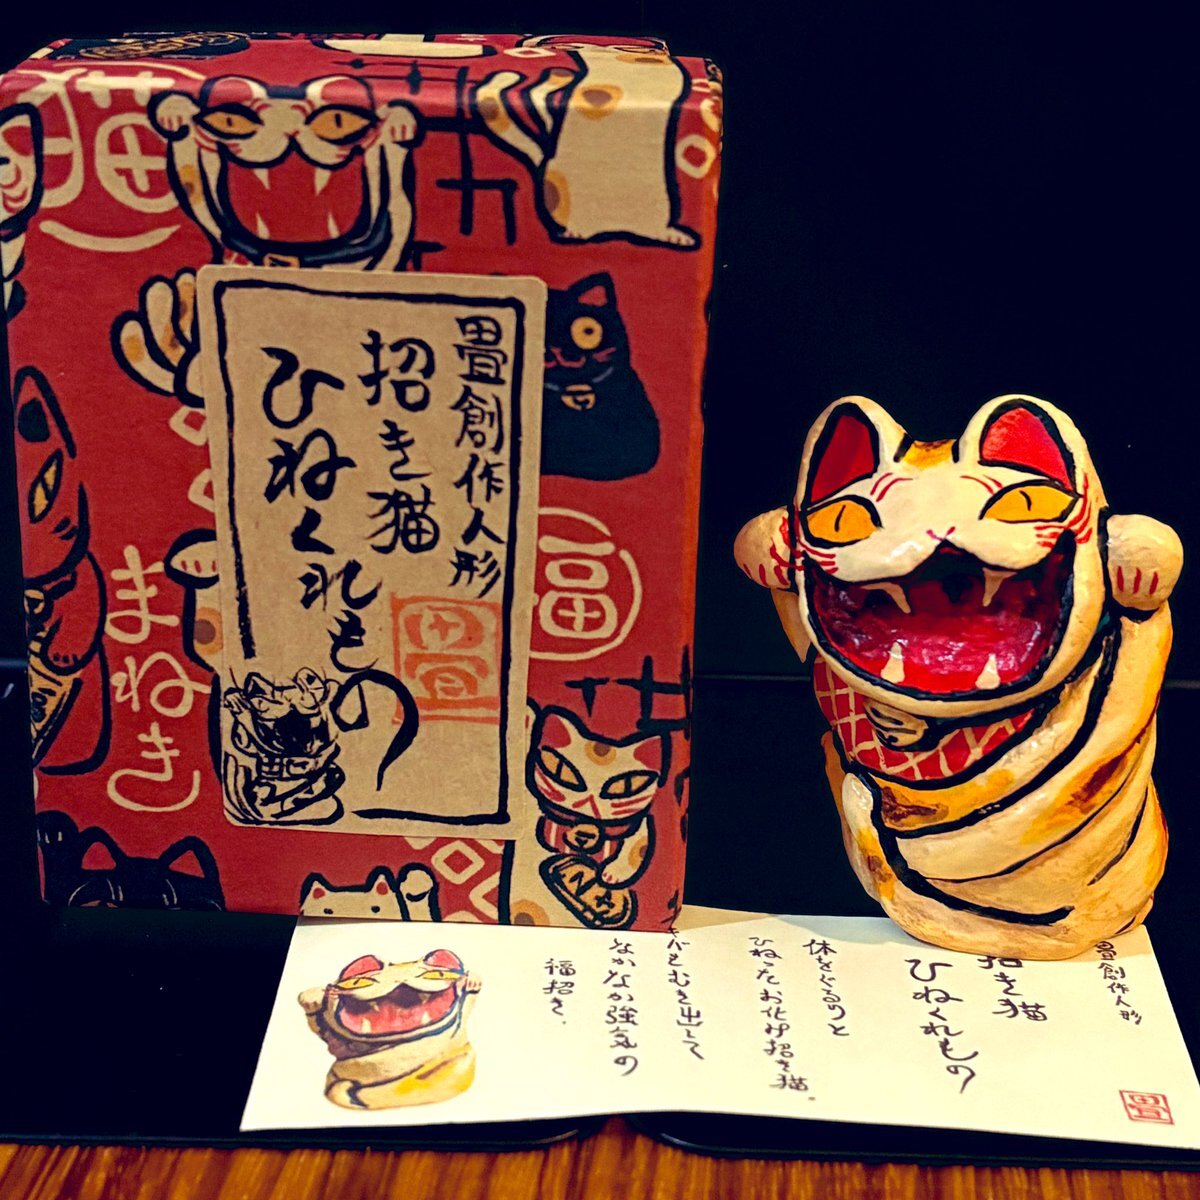 猫
畳創作人形
招き猫
ひねくれもの
畳
福
まねき
畳創作人形
招き猫
ひねくれもの
体をぐるりと
ひねったお化け招き猫。
キバをむき出して
なかなか強気の
福招き。
畳